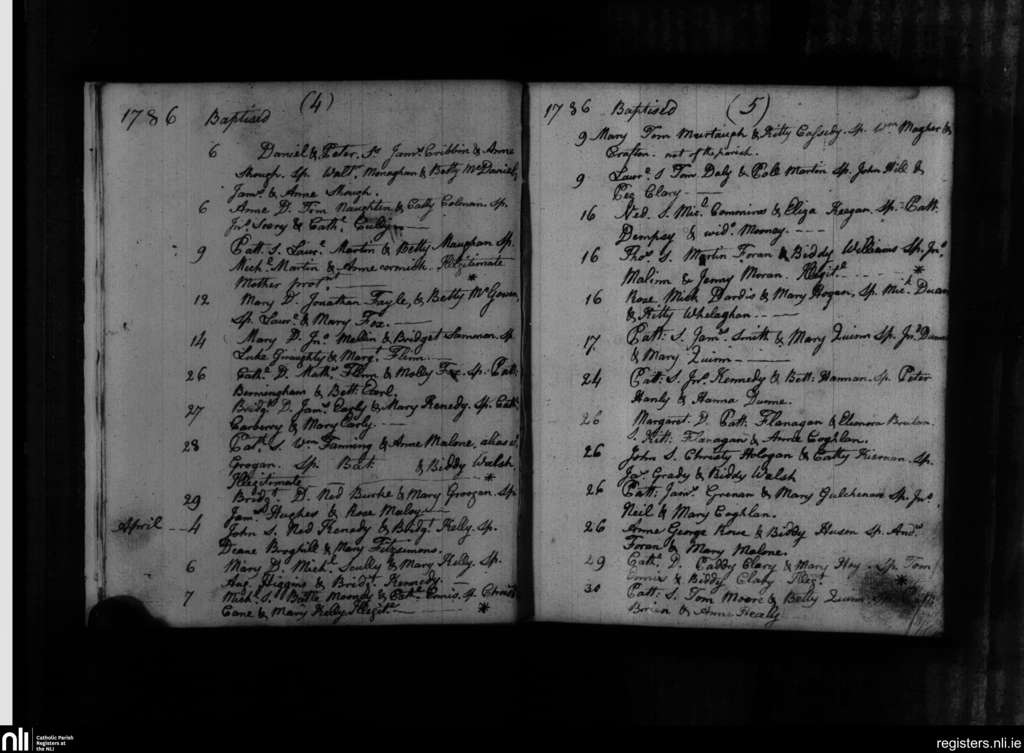 1786 Baptised (4)
6 Daniel & Peter. Ss Jams. Cribbin & Anne
Shough. Sp. Walt. Monaghan & Betty McDaniel,
Jams. & Anne Shough.
6 Anne D. Tom Naughten & Catty Colman. Sp.
Jns. & Cathe.
9 Patt. S. Laure. Martin & Betty Maughan Sp.
Miche. Martin & Anne Cormick. Illegitimate
Mother prot.
12 Mary D. Jonathan Fayle, & Betty McGowen,
Sp. Laure. & Mary Fox.
14 Mary D. Jno. & Bridget Sp.
Luke Geraughty & Margt. Flinn.
26 Cathe. D. Mathw. Flinn & Molly Fox. Sp. Patt.
Bermingham & Bett. Earl.
27 Bridgt. D. Jams. Early & Mary Kenedy. Sp. Cath.
Carberry & Mary Early.
28 S. Wm. Fanning & Anne Malone, alias
Grogan. Sp. Bat. & Biddy Walsh
Illegitimate *
29 Bridgt. D. Ned Burke & Mary Groogan. Sp.
Jams. Hughes & Rose Maloy.
April 4 John S. Ned Kenedy & Bridgt. Kelly. Sp.
Deane Broghill & Mary Fitzsimons.
6 Mary D. Michl. Scully & Mary Kelly. Sp.
Aug. Higgins & Bridgt. Kennedy.
7 Michl. S. Battle Mooney & Cathe. Ennis. Sp.
Cane & Mary Kelly. Illegite. *
1786 Baptised (5)
9 Mary Tom Murtaugh & Kitty Cassedy. Sp. Wm. Magher &
Crafton. not of the parish.
9 Laure. S Tom Daly & Poll Martin Sp. John Hill &
Peg Clary
16 Ned. S. Mics. Commins & Eliza Keegan. Sp. Patt.
Dempsy & widw. Mooney.
16 Thos. S. Martin Foran & Biddy Williams Sp. Jno.
Malinn & Jenny Moran. Illegite. *
16 Rose Mich Dardis & Mary Hogan, Sp. Mich
& Kitty Whelaghan.
17 Patt. S. Jams. Smith & Mary Quinn Sp. Jno.
& Mary Quinn
24 Patt. S. Jns. Kennedy & Bett. Hannan. Sp. Peter
Hanly & Hanna Dunne.
26 Margaret. D. Patt. Flanagan & Elenora
S. Kitt. Flanagan & Anne Coghlan.
26 John S. Christy Hologan & Catty Kiernan. Sp.
Jas. Grady & Biddy Walsh
26 Patt. Jams. Grenan & Mary Sp. Jno.
Neil & Mary Coghlan.
26 Anne George Rowe & Biddy Huson Sp. Andw.
Foran & Mary Malone.
29 Cath. D. Paddy Clary & Mary Hoy. Sp. Tom
Ennis & Biddy Clary Illegt. *
30 Patt. S. Tom Moore & Betty Quinn.
Brien & Anne Heally
nli
Catholic Parish
Registers at
the NLI
registers.nli.ie